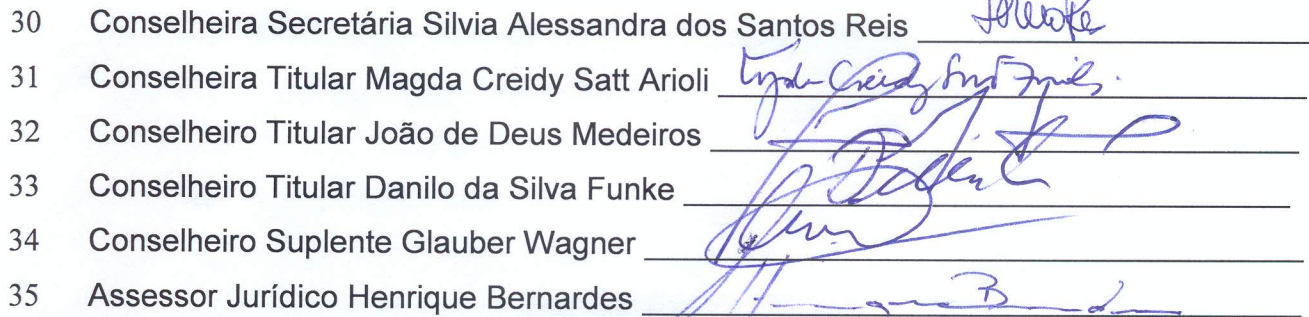 30 Conselheira Secretária Silvia Alessandra dos Santos Reis
31 Conselheira Titular Magda Creidy Satt Arioli Magda Creidy Satt Arioli
32 Conselheiro Titular João de Deus Medeiros
33 Conselheiro Titular Danilo da Silva Funke
34 Conselheiro Suplente Glauber Wagner
35 Assessor Jurídico Henrique Bernardes